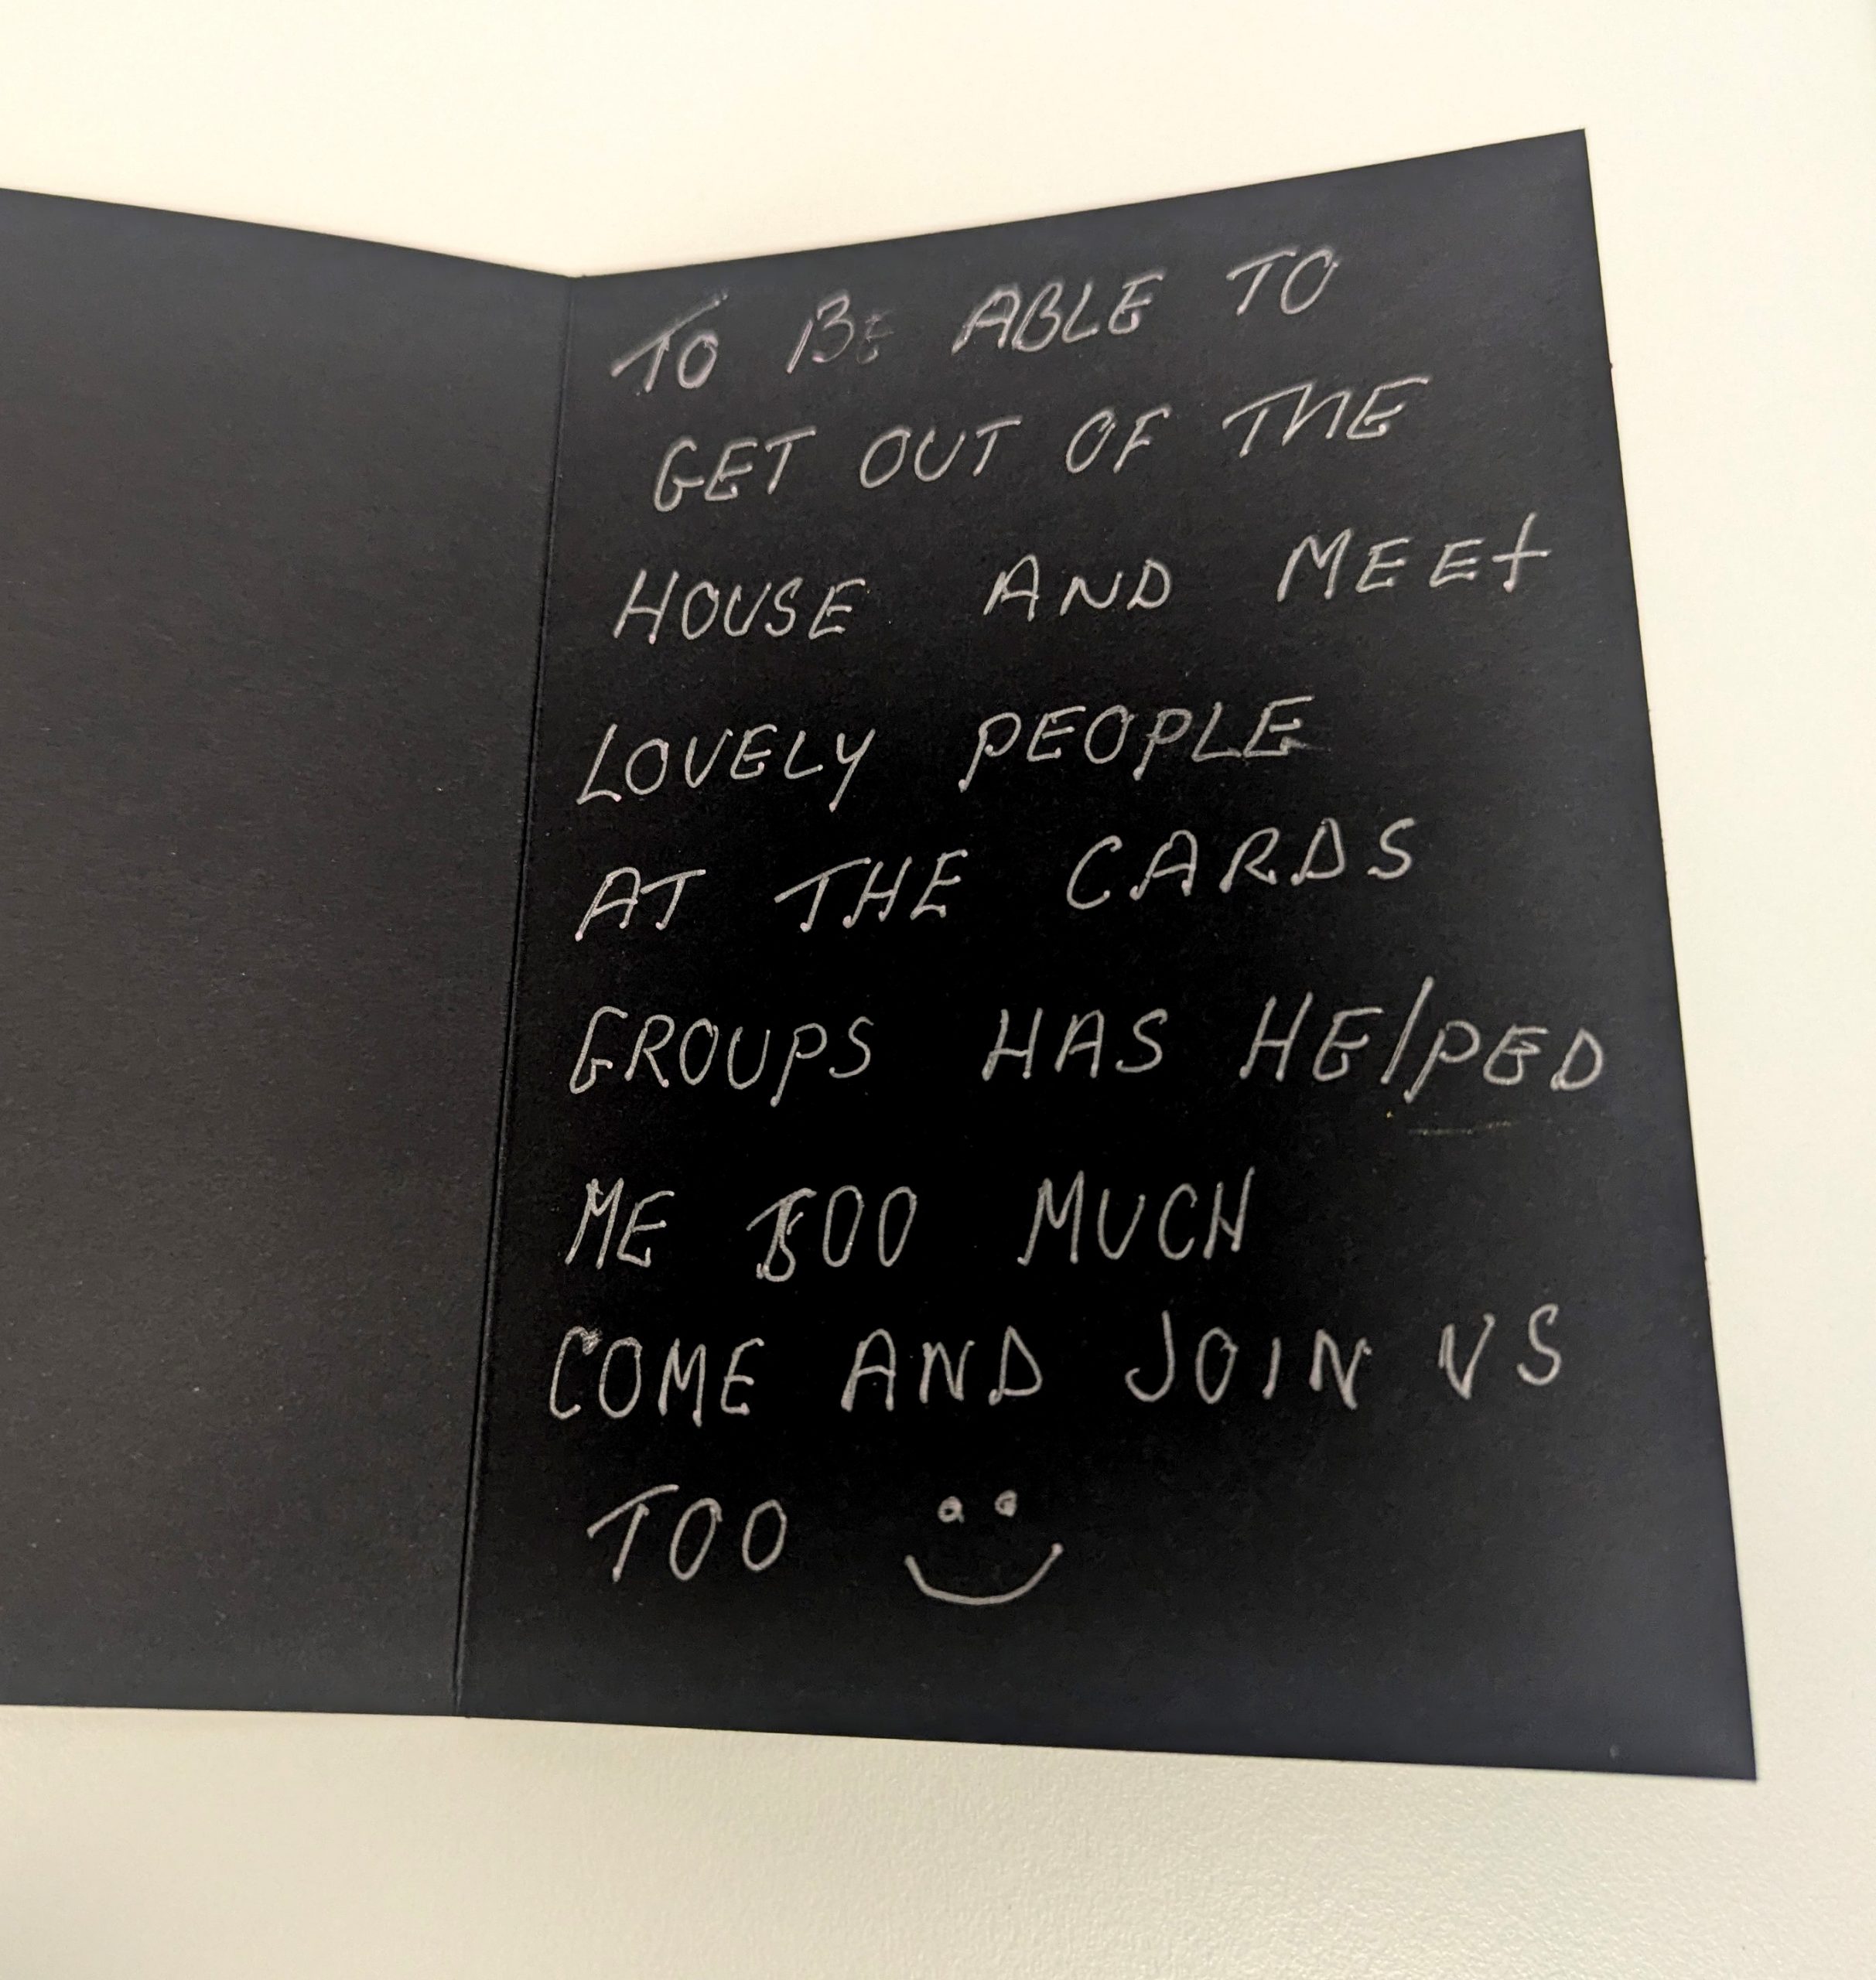 TO BE ABLE TO
GET OUT OF THE
HOUSE AND MEEt
LOVELY PEOPLE
AT THE CARDS
GROUPS HAS HElPED
ME SOO MUCH
COME AND JOIN US
TOO